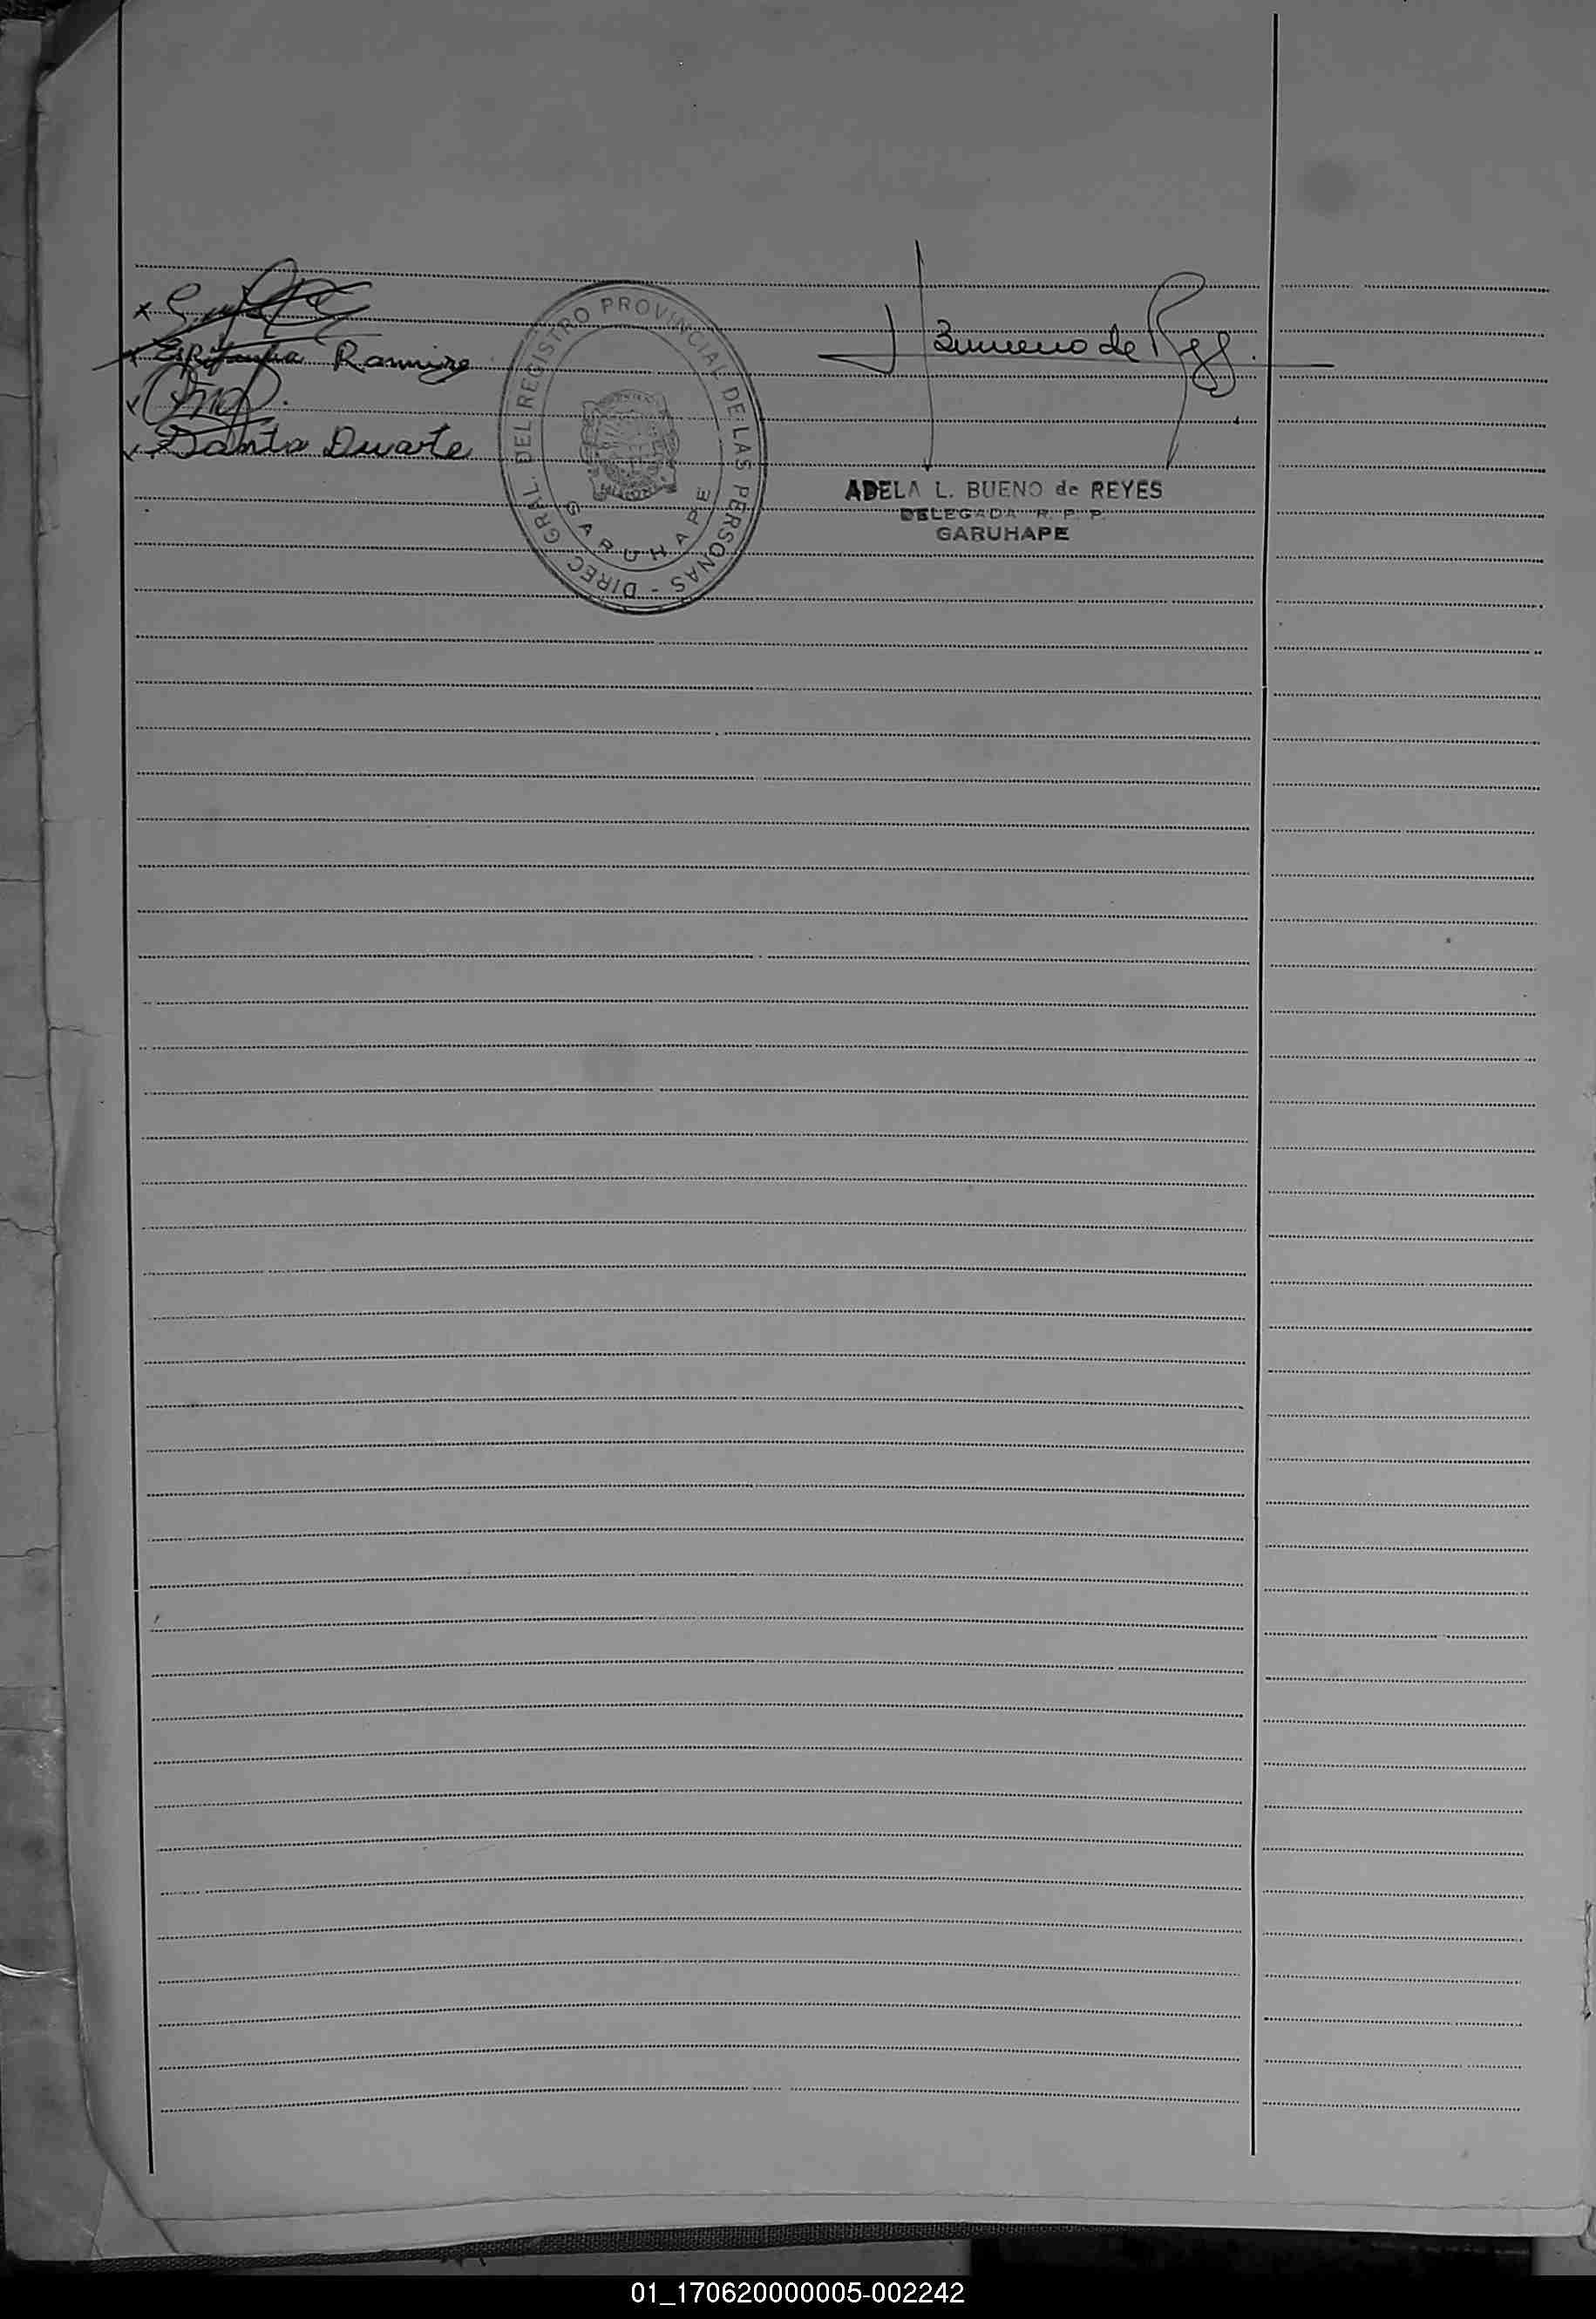 Ramirez
Santa Duarte
Bueno de Reyes
DIREC. GRAL. DEL REGISTRO PROVINCIAL DE LAS PERSONAS -
GARUHAPE
ADELA L. BUENO de REYES
DELEGADA R. P. P.
GARUHAPE
01_170620000005-002242